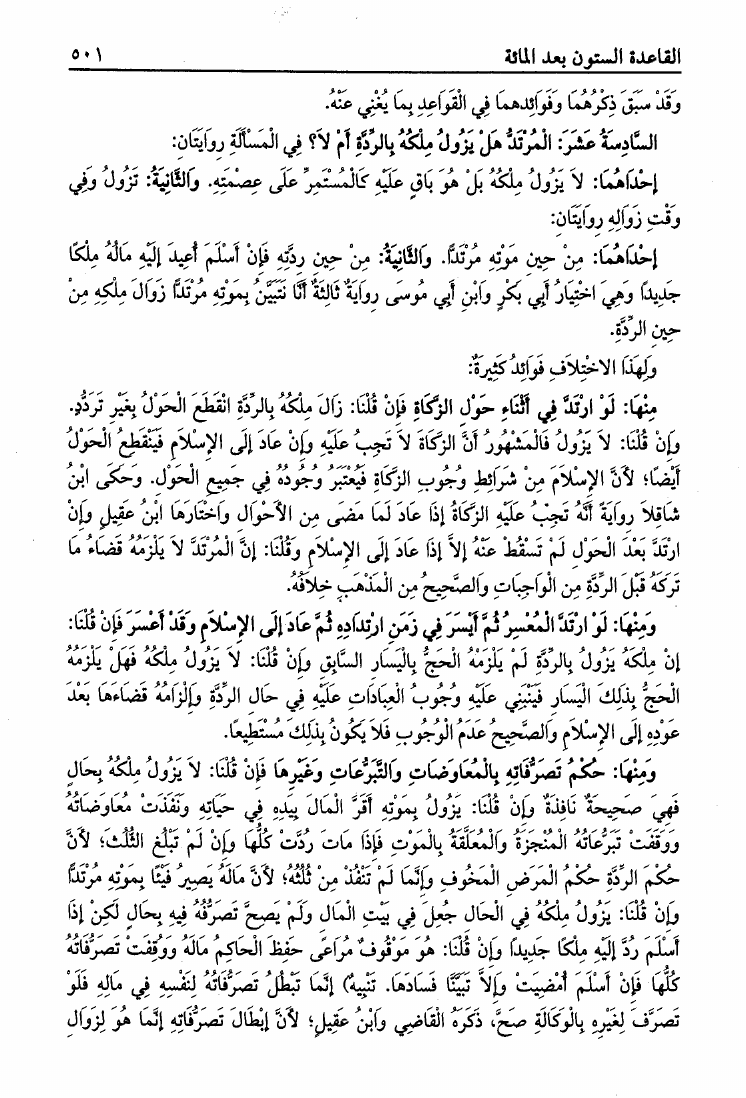 القاعدة الستون بعد المائة ٥٠١
وَقَدْ سَبَقَ ذِكْرُهُمَا وَفَوَائِدهمَا فِي الْقَوَاعِدِ بِمَا يُغْنِي عَنْهُ.
السَّادِسَةُ عَشَرَ: الْمُرْتَدُّ هَلْ يَزُولُ مِلْكُهُ بِالرِّدَّةِ أَمْ لاَ؟ فِي الْمَسْأَلَةِ رِوَايَتَانِ:
إحْدَاهُمَا: لاَ يَزُولُ مِلْكُهُ بَلْ هُوَ بَاقٍ عَلَيْهِ كَالْمُسْتَمِرِّ عَلَى عِصْمَتِهِ. وَالثَّانِيَةُ: تَزُولُ وَفِي
وَقْتِ زَوَالِهِ رِوَايَتَانِ:
إحْدَاهُمَا: مِنْ حِينِ مَوْتِهِ مُرْتَدًّا. وَالثَّانِيَةُ: مِنْ حِينِ رِدَّتِهِ فَإِنْ أَسْلَمَ أُعِيدَ إلَيْهِ مَالُهُ مِلْكًا
جَدِيدًا وَهِيَ اخْتِيَارُ أَبِي بَكْرٍ وَابْنِ أَبِي مُوسَى رِوَايَةٌ ثَالِثَةٌ أَنَّا نَتَبَيَّنُ بِمَوْتِهِ مُرْتَدًّا زَوَالَ مِلْكِهِ مِنْ
حِينِ الرِّدَّةِ.
وَلِهَذَا الاخْتِلاَفِ فَوَائِدُ كَثِيرَةٌ:
مِنْهَا: لَوْ ارْتَدَّ فِي أَثْنَاءِ حَوْلِ الزَّكَاةِ فَإِنْ قُلْنَا: زَالَ مِلْكُهُ بِالرِّدَّةِ انْقَطَعَ الْحَوْلُ بِغَيْرِ تَرَدُّدٍ.
وَإِنْ قُلْنَا: لاَ يَزُولُ فَالْمَشْهُورُ أَنَّ الزَّكَاةَ لاَ تَجِبُ عَلَيْهِ وَإِنْ عَادَ إلَى الإِسْلاَمِ فَيَنْقَطِعُ الْحَوْلُ
أَيْضًا؛ لأَنَّ الإِسْلاَمَ مِنْ شَرَائِطِ وُجُوبِ الزَّكَاةِ فَيُعْتَبَرُ وُجُودُهُ فِي جَمِيعِ الْحَوْلِ. وَحَكَى ابْنُ
شَاقِلاَ رِوَايَةً أَنَّهُ تَجِبُ عَلَيْهِ الزَّكَاةُ إذَا عَادَ لَمَا مَضَى مِن الأَحْوَالِ وَاخْتَارَهَا ابْنُ عَقِيلٍ وَإِنْ
ارْتَدَّ بَعْدَ الْحَوْلِ لَمْ تَسْقُطْ عَنْهُ إلاَّ إذَا عَادَ إلَى الإِسْلاَمِ وَقُلْنَا: إنَّ الْمُرْتَدَّ لاَ يَلْزَمُهُ قَضَاءُ مَا
تَرَكَهُ قَبْلَ الرِّدَّةِ مِن الْوَاجِبَاتِ وَالصَّحِيحُ مِن الْمَذْهَبِ خِلاَفُهُ.
وَمِنْهَا: لَوْ ارْتَدَّ الْمُعْسِرُ ثُمَّ أَيْسَرَ فِي زَمَنِ ارْتِدَادِهِ ثُمَّ عَادَ إلَى الإِسْلاَمِ وَقَدْ أَعْسَرَ فَإِنْ قُلْنَا:
إنْ مِلْكَهُ يَزُولُ بِالرِّدَّةِ لَمْ يَلْزَمْهُ الْحَجُّ بِالْيَسَارِ السَّابِقِ وَإِنْ قُلْنَا: لاَ يَزُولُ مِلْكُهُ فَهَلْ يَلْزَمُهُ
الْحَجُّ بِذَلِكَ الْيَسَارِ فَيَنْبَنِي عَلَيْهِ وُجُوبُ الْعِبَادَاتِ عَلَيْهِ فِي حَالِ الرِّدَّةِ وَإِلْزَامُهُ قَضَاءَهَا بَعْدَ
عَوْدِهِ إلَى الإِسْلاَمِ وَالصَّحِيحُ عَدَمُ الْوُجُوبِ فَلاَ يَكُونُ بِذَلِكَ مُسْتَطِيعًا.
وَمِنْهَا: حُكْمُ تَصَرُّفَاتِهِ بِالْمُعَاوَضَاتِ وَالتَّبَرُّعَاتِ وَغَيْرِهَا فَإِنْ قُلْنَا: لاَ يَزُولُ مِلْكُهُ بِحَالٍ
فَهِيَ صَحِيحَةٌ نَافِذَةٌ وَإِنْ قُلْنَا: يَزُولُ بِمَوْتِهِ أَقَرَّ الْمَالَ بِيَدِهِ فِي حَيَاتِهِ وَنَفَذَتْ مُعَاوَضَاتُهُ
وَوَقَفَتْ تَبَرُّعَاتُهُ الْمُنْجَزَةُ وَالْمُعَلَّقَةُ بِالْمَوْتِ فَإِذَا مَاتَ رُدَّتْ كُلُّهَا وَإِنْ لَمْ تَبْلُغِ الثُّلُثَ؛ لأَنَّ
حُكْمَ الرِّدَّةِ حُكْمُ الْمَرَضِ الْمَخُوفِ وَإِنَّمَا لَمْ تَنْفُذْ مِنْ ثُلُثُهُ؛ لأَنَّ مَالَهُ يَصِيرُ فَيْئًا بِمَوْتِهِ مُرْتَدًّا
وَإِنْ قُلْنَا: يَزُولُ مِلْكُهُ فِي الْحَالِ جُعِلَ فِي بَيْتِ الْمَالِ وَلَمْ يَصِحَّ تَصَرُّفُهُ فِيهِ بِحَالٍ لَكِنْ إذَا
أَسْلَمَ رُدَّ إلَيْهِ مِلْكًا جَدِيدًا وَإِنْ قُلْنَا: هُوَ مَوْقُوفٌ مُرَاعَى حَفِظَ الْحَاكِمُ مَالَهُ وَوُقِفَتْ تَصَرُّفَاتُهُ
كُلُّهَا فَإِنْ أَسْلَمَ أُمْضِيَتْ وَإِلاَّ تَبَيَّنَّا فَسَادَهَا. تَنْبِيهٌ) إنَّمَا تَبْطُلُ تَصَرُّفَاتُهُ لِنَفْسِهِ فِي مَالِهِ فَلَوْ
تَصَرَّفَ لِغَيْرِهِ بِالْوَكَالَةِ صَحَّ، ذَكَرَهُ الْقَاضِي وَابْنُ عَقِيلٍ؛ لأَنَّ إبْطَالَ تَصَرُّفَاتِهِ إنَّمَا هُوَ لِزَوَالِ